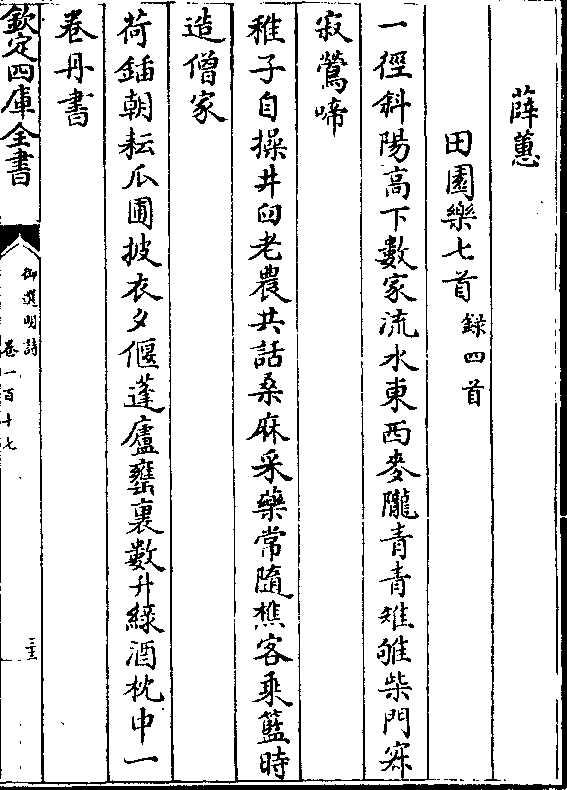 薛蕙
田園樂七首 録四首
一徑斜陽高下數家流水東西麥隴青青雉雊柴門寂
寂鶯啼
稚子自操井臼老農共話桑麻采藥常隨樵客乘籃時
造僧家
荷鍤朝耘瓜圃披衣夕偃蓬廬甕裏數升緑酒枕中一
卷丹書
欽定四庫全書
御選明詩
卷一百十七